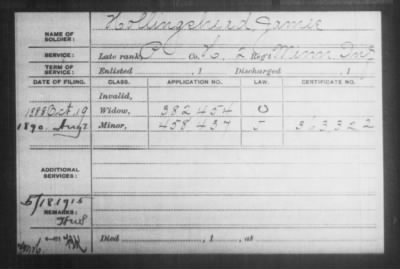 NAME OF SOLDIER: Hollingshead, James
SERVICE: Late rank, P Co. K, 2 Reg't Minn Inf
TERM OF SERVICE: Enlisted , 1 Discharged , 1
DATE OF FILING. CLASS. APPLICATION NO. LAW. CERTIFICATE NO.
Invalid,
1888 Oct. 19 Widow, 382454 O
1890. Aug 7 Minor, 458437 J 363322
ADDITIONAL SERVICES:
5/18 1915
REMARKS:
Died , 1 , at